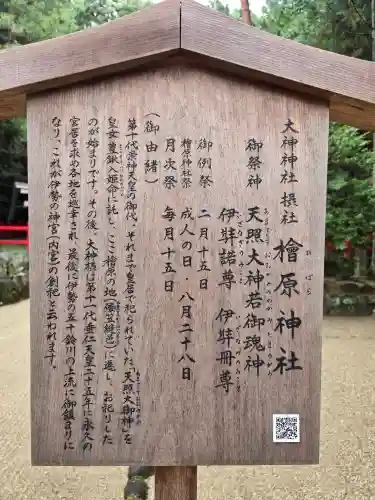 大神神社 摂社 檜原神社
御祭神 天照大神若御魂神
伊弉諾尊 伊弉冊尊
御例祭 二月十五日
檜原神社祭 成人の日・八月二十八日
月次祭 毎月十五日
（御由緒）
第十代崇神天皇の御代、それまで皇居で祀られていた「天照大御神」を
皇女豊鍬入姫命に託し、ここ檜原の地（倭笠縫邑）に遷し、お祀りした
のが始まりです。その後、大神様は第十一代垂仁天皇二十五年に永久の
宮居を求め各地を巡幸され、最後に伊勢の五十鈴川の上流に御鎮まりに
なり、これが伊勢の神宮（内宮）の創祀と云われます。